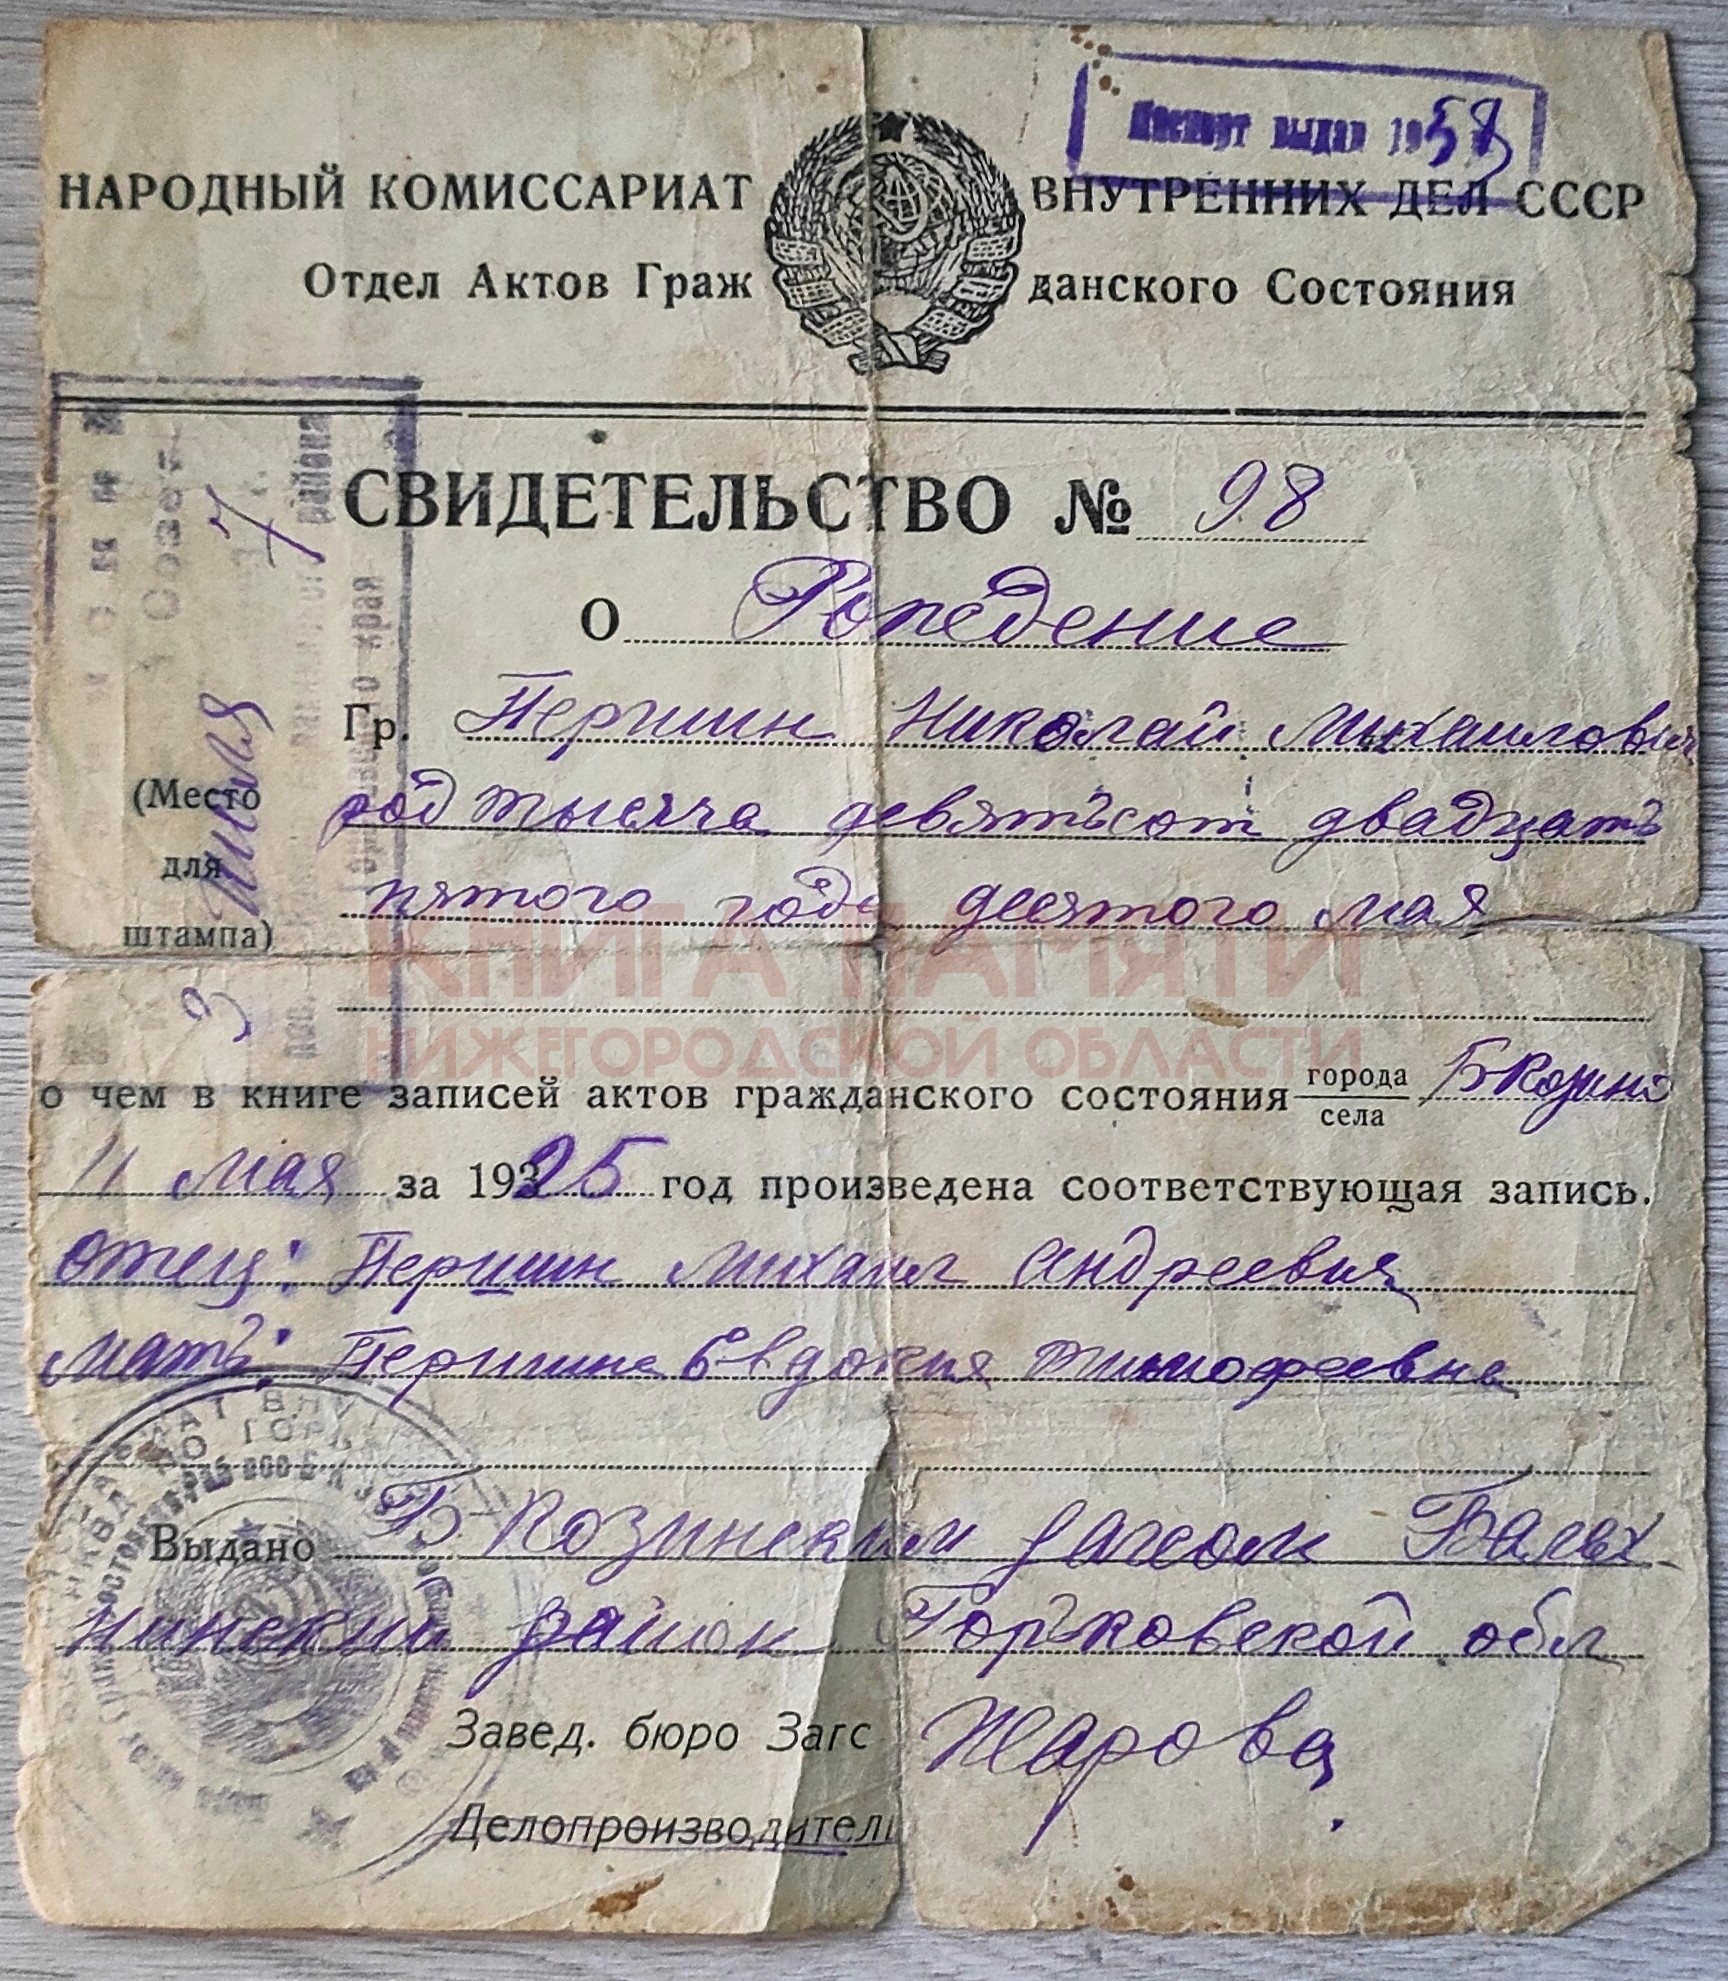 Паспорт выдан 1958
НАРОДНЫЙ КОМИССАРИАТ ВНУТРЕННИХ ДЕЛ СССР
Отдел Актов Гражданского Состояния
СВИДЕТЕЛЬСТВО № 98
О Рождение
Гр. Першин Николай Михаилович
род тысяча девятьсот двадцать
пятого года десятого мая
района
края
7
июля
3
(Место
для
штампа)
КНИГА ПАМЯТИ
НИЖЕГОРОДСКОЙ ОБЛАСТИ
о чем в книге записей актов гражданского состояния города села Б Козино
11 мая за 1925 год произведена соответствующая запись.
отец: Першин Михаил Андреевич
мать: Першина Евдокия Тимофеевна
Выдано Б-Козинским загсом Балах-
нинский район Горьковской обл
Завед. бюро Загс Жарова
Делопроизводитель